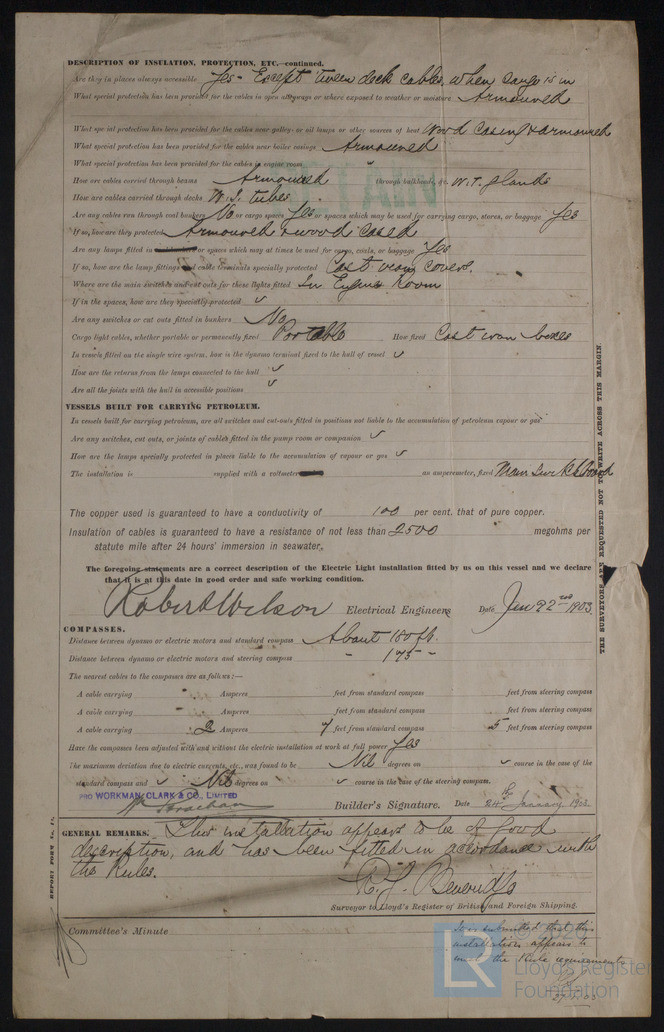 DESCRIPTION OF INSULATION, PROTECTION, ETC.—continued.
Are they in places always accessible Yes - Except 'tween deck cables when cargo is in
What special protection has been provided for the cables in open alleyways or where exposed to weather or moisture Armoured
What special protection has been provided for the cables near galleys or oil lamps or other sources of heat Wood Casing & armoured
What special protection has been provided for the cables near boiler casings Armoured
What special protection has been provided for the cables in engine room "
How are cables carried through beams Armoured through bulkheads, &c. W.T. glands
How are cables carried through decks W.I. tubes
Are any cables run through coal bunkers No or cargo spaces Yes or spaces which may be used for carrying cargo, stores, or baggage Yes
If so, how are they protected Armoured & wood cased
Are any lamps fitted in or spaces which may at times be used for cargo, coals, or baggage Yes
If so, how are the lamp fittings and cable terminals specially protected Cast iron covers.
Where are the main switches and cut outs for these lights fitted In Engine Room
If in the spaces, how are they specially protected ✓
Are any switches or cut outs fitted in bunkers No
Cargo light cables, whether portable or permanently fixed Portable How fixed Cast iron boxes
In vessels fitted on the single wire system, how is the dynamo terminal fixed to the hull of vessel ✓
How are the returns from the lamps connected to the hull ✓
Are all the joints with the hull in accessible positions ✓
VESSELS BUILT FOR CARRYING PETROLEUM.
In vessels built for carrying petroleum, are all switches and cut-outs fitted in positions not liable to the accumulation of petroleum vapour or gas
Are any switches, cut outs, or joints of cables fitted in the pump room or companion ✓
How are the lamps specially protected in places liable to the accumulation of vapour or gas ✓
The installation is supplied with a voltmeter an amperemeter, fixed Main Switchboard
The copper used is guaranteed to have a conductivity of 100 per cent. that of pure copper.
Insulation of cables is guaranteed to have a resistance of not less than 2500 megohms per
statute mile after 24 hours' immersion in seawater.
The foregoing statements are a correct description of the Electric Light installation fitted by us on this vessel and we declare
that it is at this date in good order and safe working condition.
Robert Wilson Electrical Engineers Date Jan 22nd 1903.
COMPASSES.
Distance between dynamo or electric motors and standard compass About 180 ft.
Distance between dynamo or electric motors and steering compass - 175 -
The nearest cables to the compasses are as follows:—
A cable carrying Amperes feet from standard compass feet from steering compass
A cable carrying Amperes feet from standard compass feet from steering compass
A cable carrying 2 Amperes 7 feet from standard compass 5 feet from steering compass
Have the compasses been adjusted with and without the electric installation at work at full power Yes
The maximum deviation due to electric currents, etc., was found to be Nil degrees on ✓ course in the case of the
standard compass and ✓ Nil degrees on ✓ course in the case of the steering compass.
PRO WORKMAN, CLARK & CO., LIMITED
Strachan Builder's Signature. Date 24th January 1903
GENERAL REMARKS. This installation appears to be of good
description, and has been fitted in accordance with
the Rules.
R. J. Beveridge
Surveyor to Lloyd's Register of British and Foreign Shipping.
Committee's Minute
It is submitted that this
installation appears to
meet the Rule requirements
27.1.03
THE SURVEYORS ARE REQUESTED NOT TO WRITE ACROSS THIS MARGIN.
REPORT FORM No.
LR
Lloyd's Register
Foundation